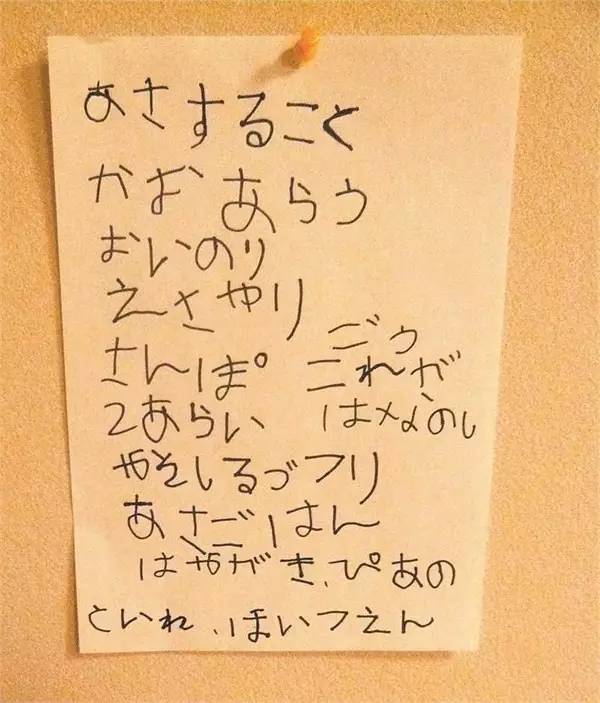 あさすること
かおあらう
おいのり
えさやり
さんぽ
2あらい
ごぅ
これが
やそしるづフリ
あさごはん
はやがき、ぴあの
といれ、ほいつえん